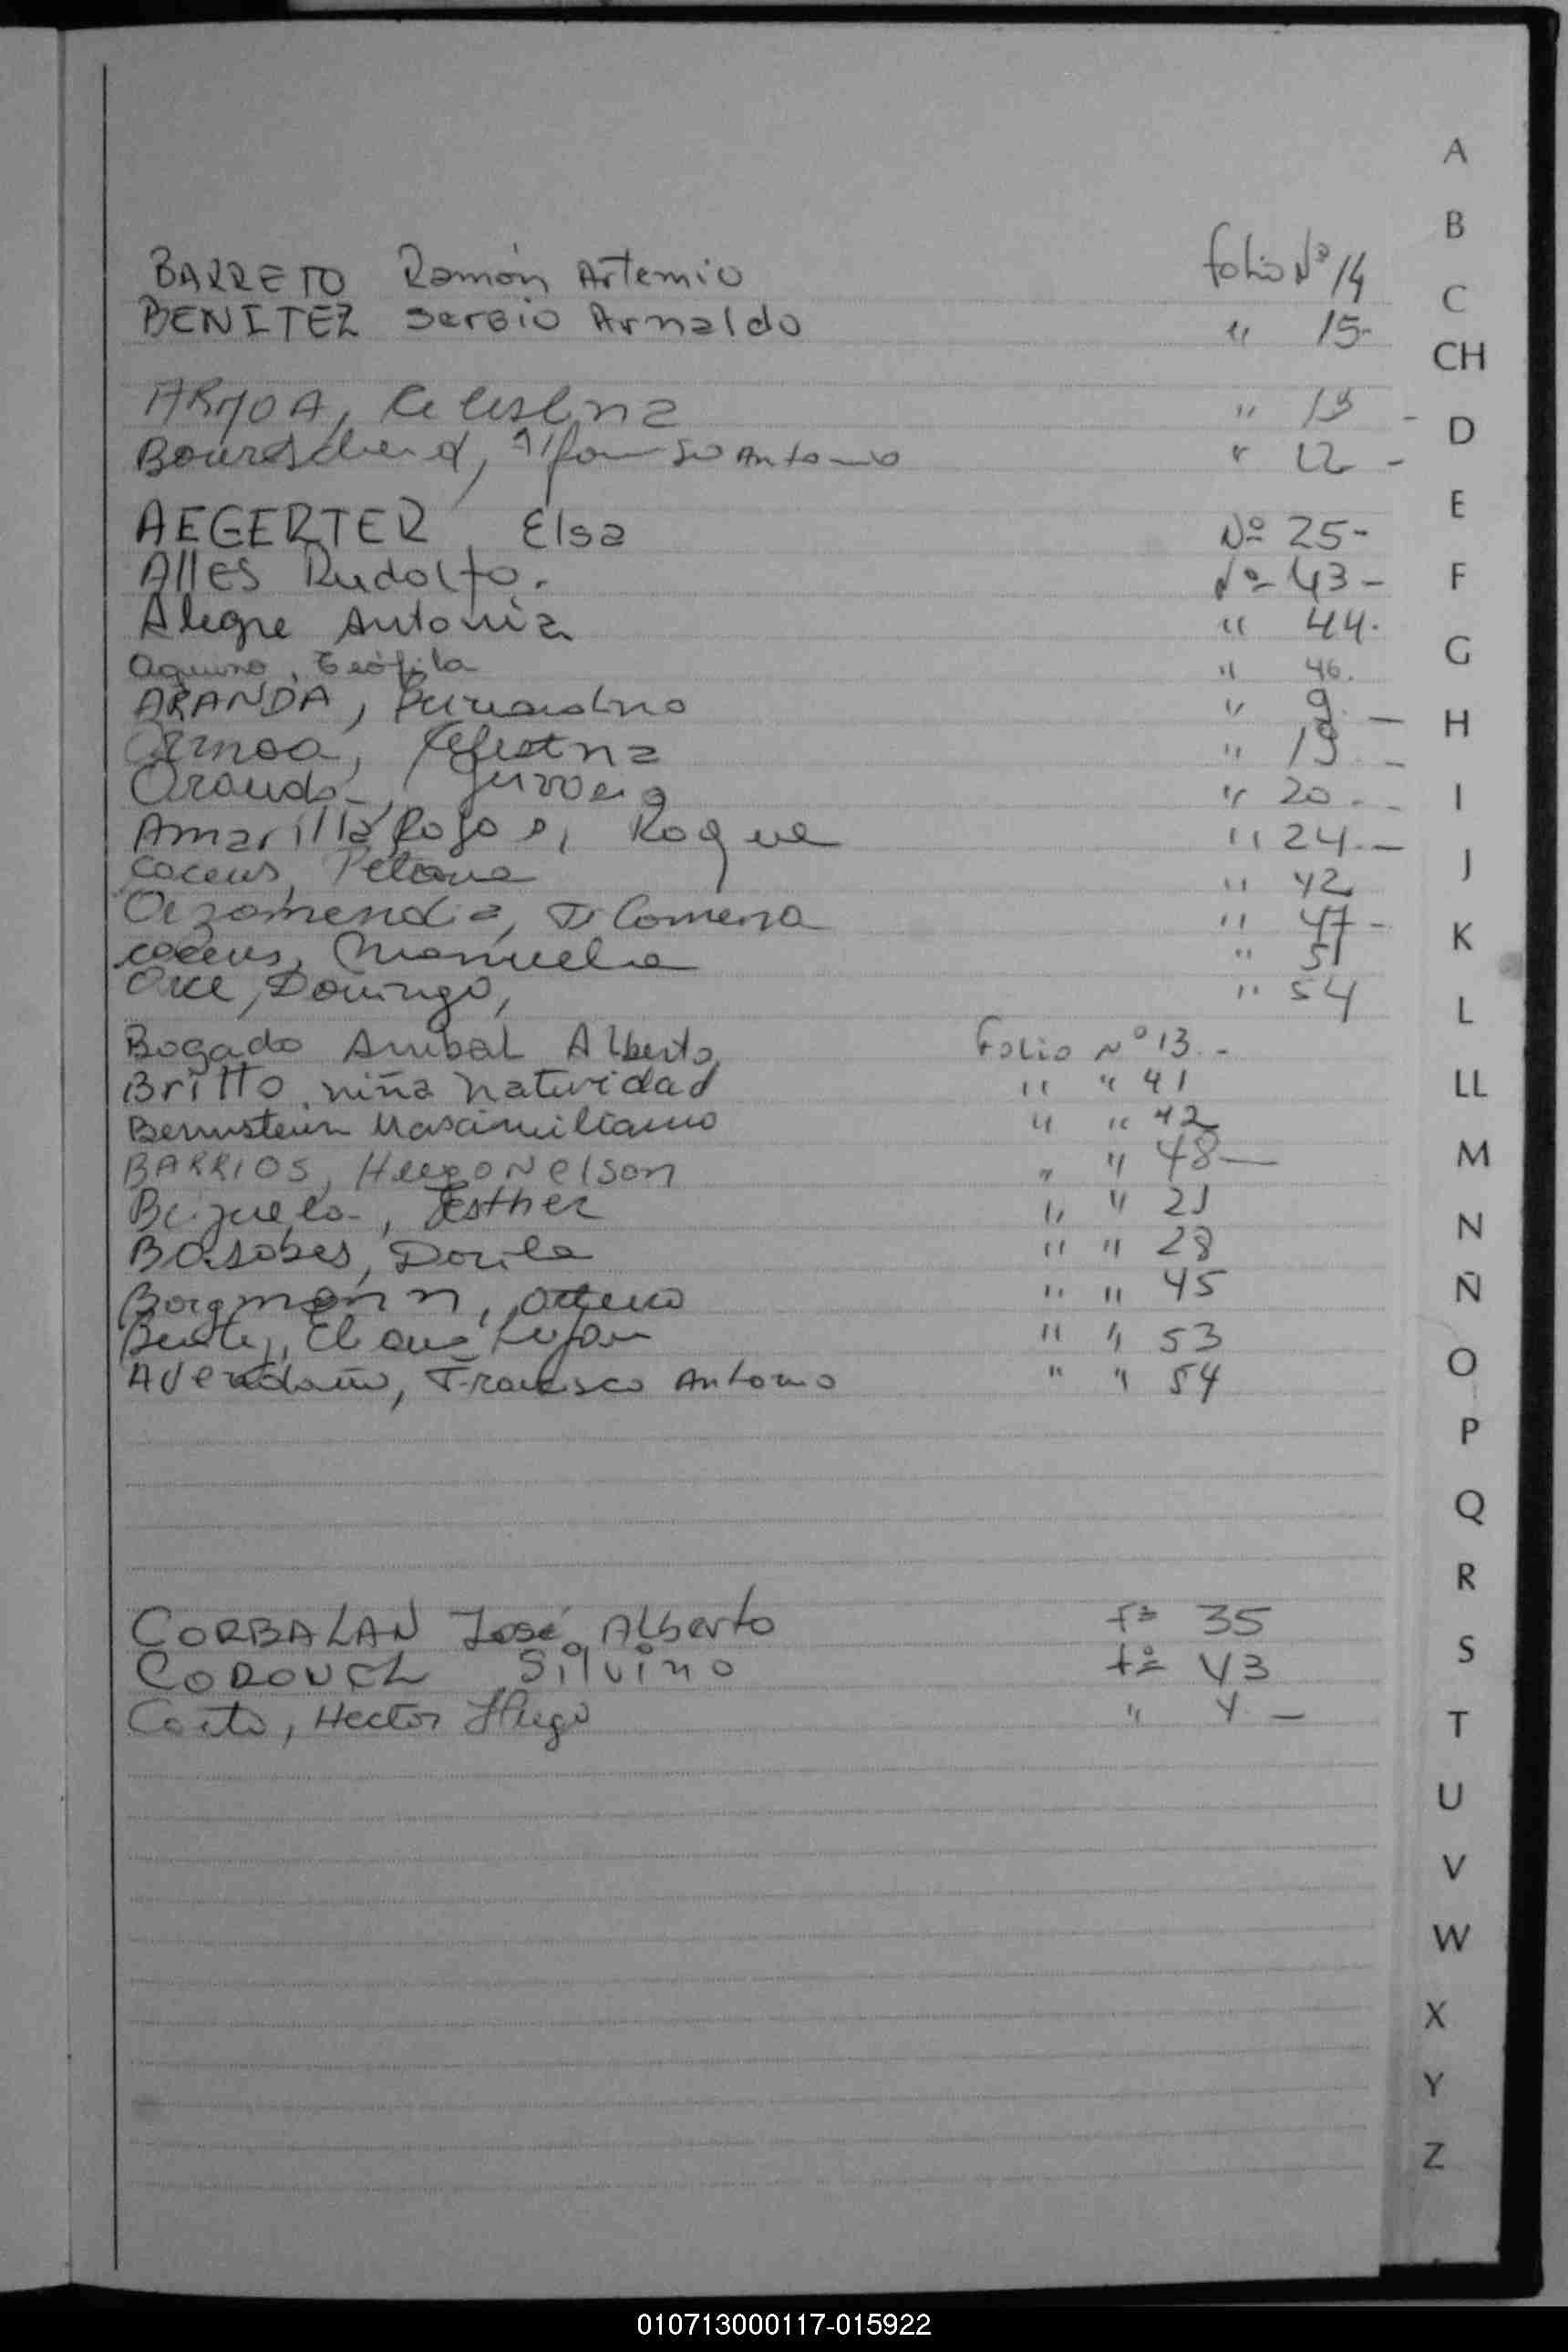 BARRETO Ramón Artemio Folio Nº 14
BENITEZ Sergio Arnaldo " 15-
ARMOA, Celestina " 19 -
Alfonso Antonio " 22 -
AEGERTER Elsa Nº 25-
Alles Rudolfo. Nº 43-
Alegre Antonia " 44.
Aquino, Teófila " 46.
ARANDA, Bernardino " 9. -
Armoa, Celestina " 19. -
Aranda, " 20. -
Amarilla Rojas, Roque " 24. -
" 42
Arizmendia, Filomena " 47 -
Manuela " 51
Arce, Domingo, " 54
Bogado Anibal Alberto Folio Nº 13. -
Britto, niña natividad " " 41
Bernstein Maximiliano " " 42
BARRIOS, Hugo Nelson " " 48 -
Brizuela, Esther " " 21
Basabes, Dorila " " 28
Borgmann, " " 45
Benitez, Lujan " " 53
Avendaño, Francisco Antonio " " 54
CORBALAN José Alberto Fº 35
CORONEL Silvino Fº 43
Hector Hugo " 4. -
A
B
C
CH
D
E
F
G
H
I
J
K
L
LL
M
N
Ñ
O
P
Q
R
S
T
U
V
W
X
Y
Z
010713000117-015922